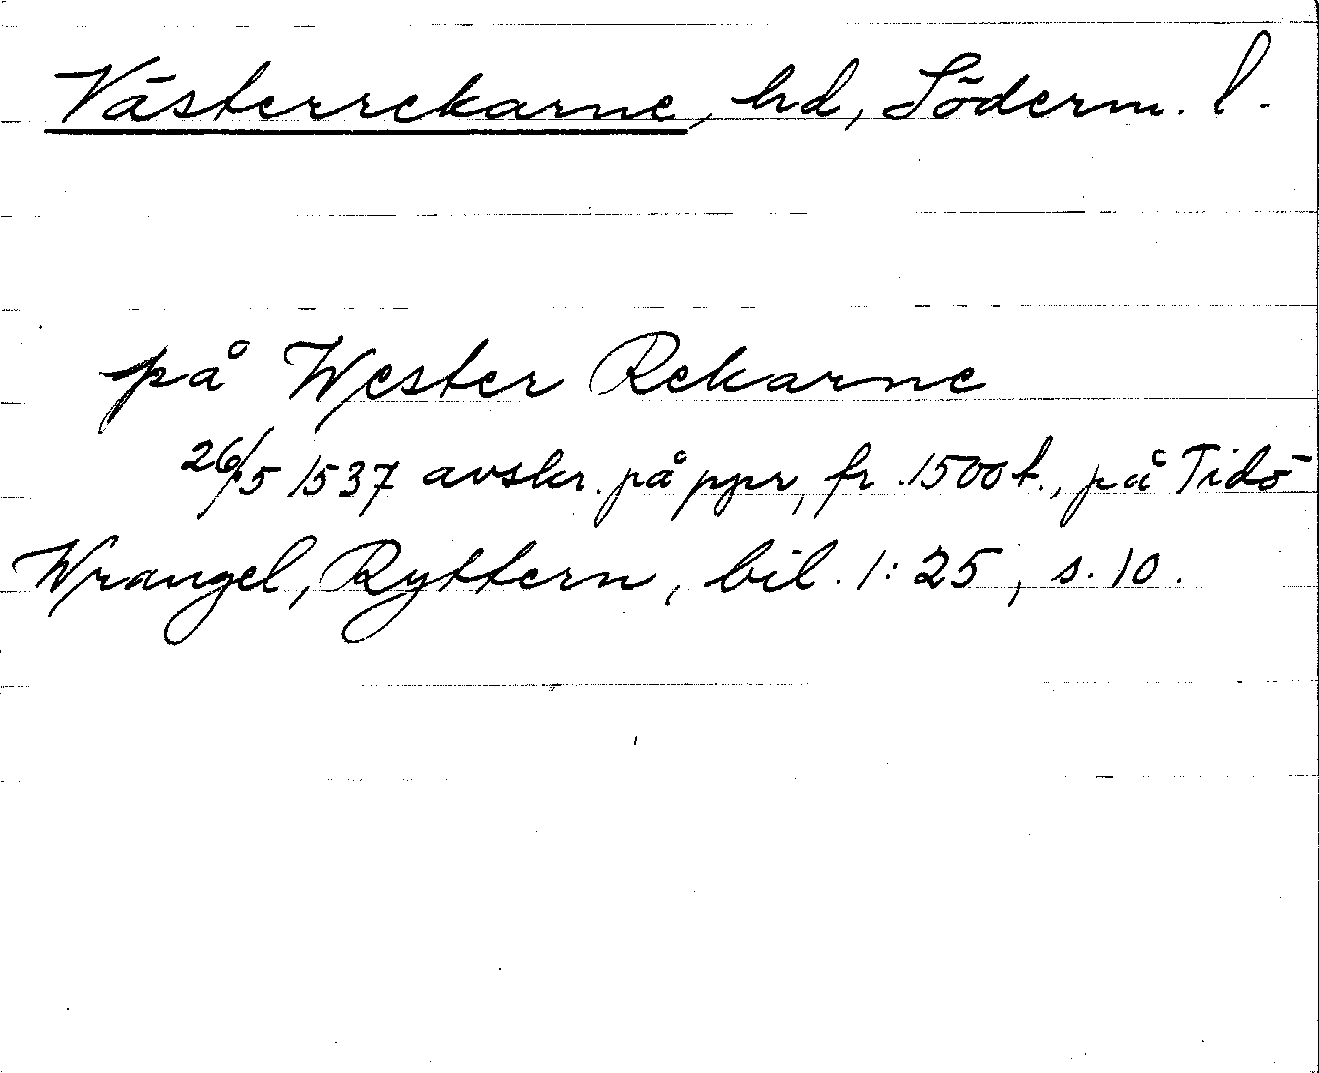 Västerrekarne, hd, Söderm. l.
på Wester Rekarne
26/5 1537 avskr. på ppr, fr. 1500 t., på Tidö
Wrangel, Ryttern, bil. 1:25, s. 10.